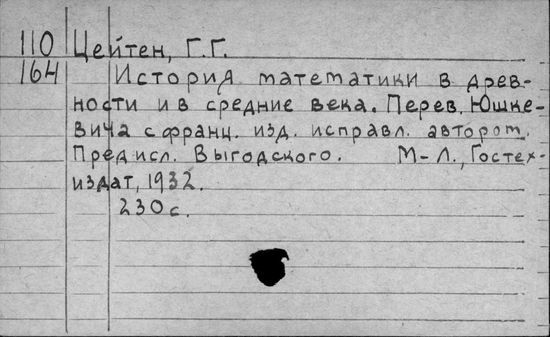 110 Цейтен, Г.Г.
164 История математики в древ-
ности и в средние века. Перев. Юшке-
вича с франц. изд. исправл. автором.
Предисл. Выгодского. М-Л., Гостех-
издат, 1932.
230 с.